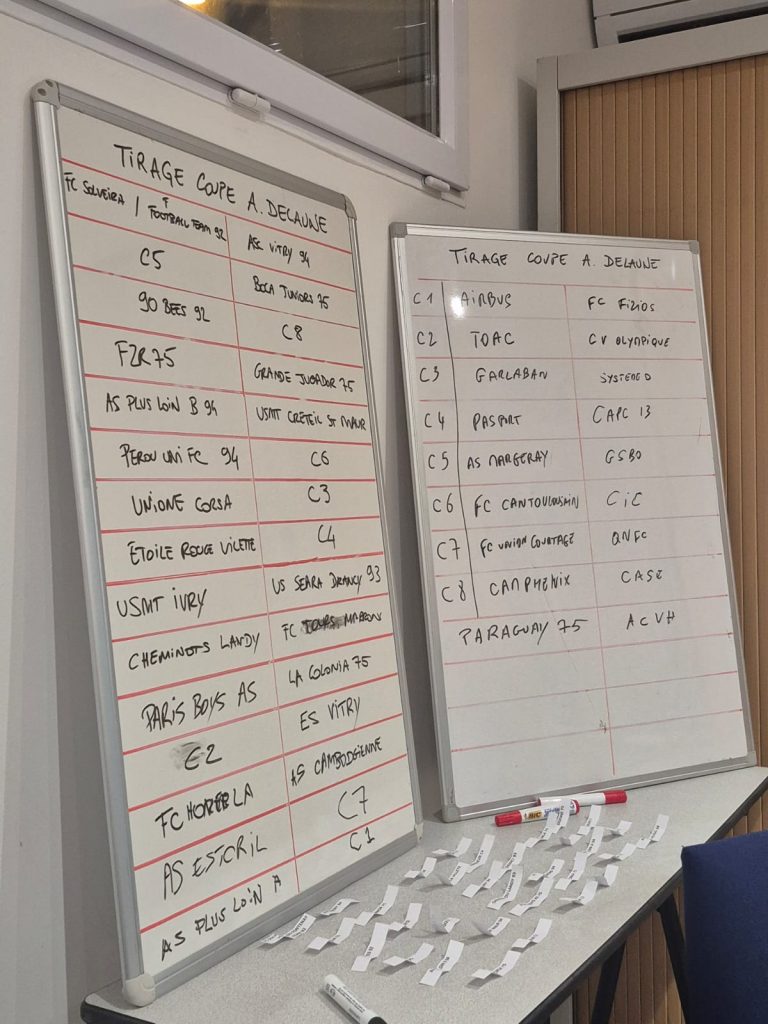 TIRAGE COUPE A. DELAUNE
FC SOLVEIRA / FOOTBALL TEAM 92 ASC VITRY 94
C5 BOCA JUNIORS 75
90 BEES 92 C8
F2R75 GRANDE JUGADOR 75
AS PLUS LOIN B 94 USMT CRETEIL ST MAUR
PEROU UNI FC 94 C6
UNIONE CORSA C3
ETOILE ROUGE VILETTE C4
USMT IVRY US SEARA DRANCY 93
CHEMINOTS LANDY FC MAARON
PARIS BOYS AS LA COLONIA 75
C2 ES VITRY
FC HOREB LA AS CAMBODGIENNE
AS ESTORIL C7
AS PLUS LOIN A C1
TIRAGE COUPE A. DELAUNE
C1 AIRBUS FC FIZIOS
C2 TOAC CV OLYMPIQUE
C3 GARLABAN SYSTEME D
C4 PASPORT CAPC 13
C5 AS MARGERAY GSBO
C6 FC CANTOULOUSAIN CIC
C7 FC UNION COURTAGE QNFC
C8 CAMPHENIX CASE
PARAGUAY 75 ACVH
BIC